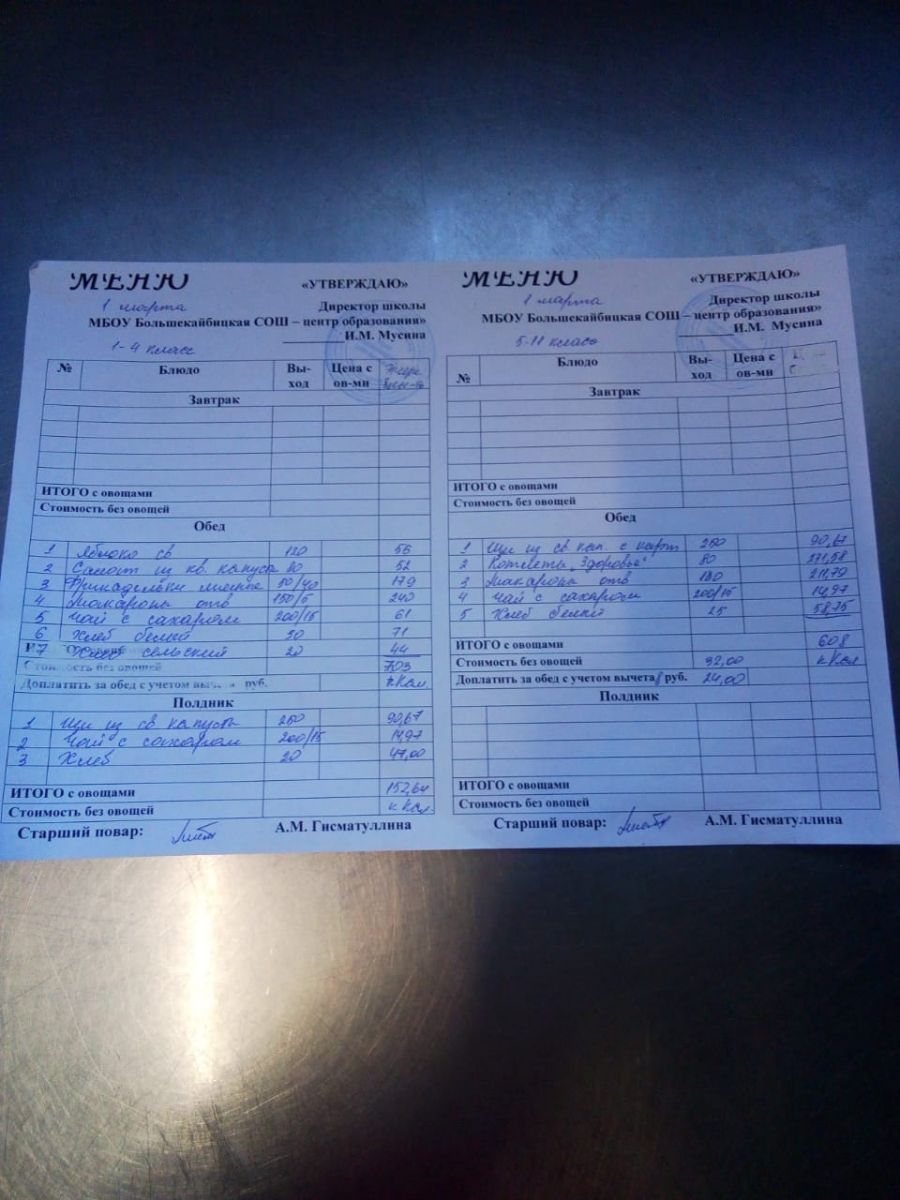 МЕНЮ
«УТВЕРЖДАЮ»
1 марта
Директор школы
МБОУ Большекайбицкая СОШ – центр образования»
И.М. Мусина
1-4 класс
№ Блюдо Вы-ход Цена с ов-ми
Завтрак
ИТОГО с овощами
Стоимость без овощей
Обед
1 Яблоко св 120 56
2 Салат из кв. капуста 80 52
3 Фрикадельки мясные 50/40 179
4 Макароны отв 150/5 240
5 Чай с сахаром 200/15 61
6 Хлеб белый 30 71
7 Хлеб сельский 20 44
Стоимость без овощей 703
Доплатить за обед с учетом руб. кКал
Полдник
1 Щи из св капусты 250 90,67
2 Чай с сахаром 200/15 14,97
3 Хлеб 20 47,00
ИТОГО с овощами 152,64
Стоимость без овощей кКал
Старший повар: А.М. Гисматуллина
МЕНЮ
«УТВЕРЖДАЮ»
1 марта
Директор школы
МБОУ Большекайбицкая СОШ – центр образования»
И.М. Мусина
5-11 класс
№ Блюдо Вы-ход Цена с ов-ми
Завтрак
ИТОГО с овощами
Стоимость без овощей
Обед
1 Щи из св кап. с карт 250 90,67
2 Котлеты "Здоровье" 80 231,58
3 Макароны отв 180 211,79
4 Чай с сахаром 200/15 14,97
5 Хлеб белый 25 58,75
ИТОГО с овощами 608
Стоимость без овощей 92,00 кКал
Доплатить за обед с учетом вычета руб. 24,00
Полдник
ИТОГО с овощами
Стоимость без овощей
Старший повар: А.М. Гисматуллина